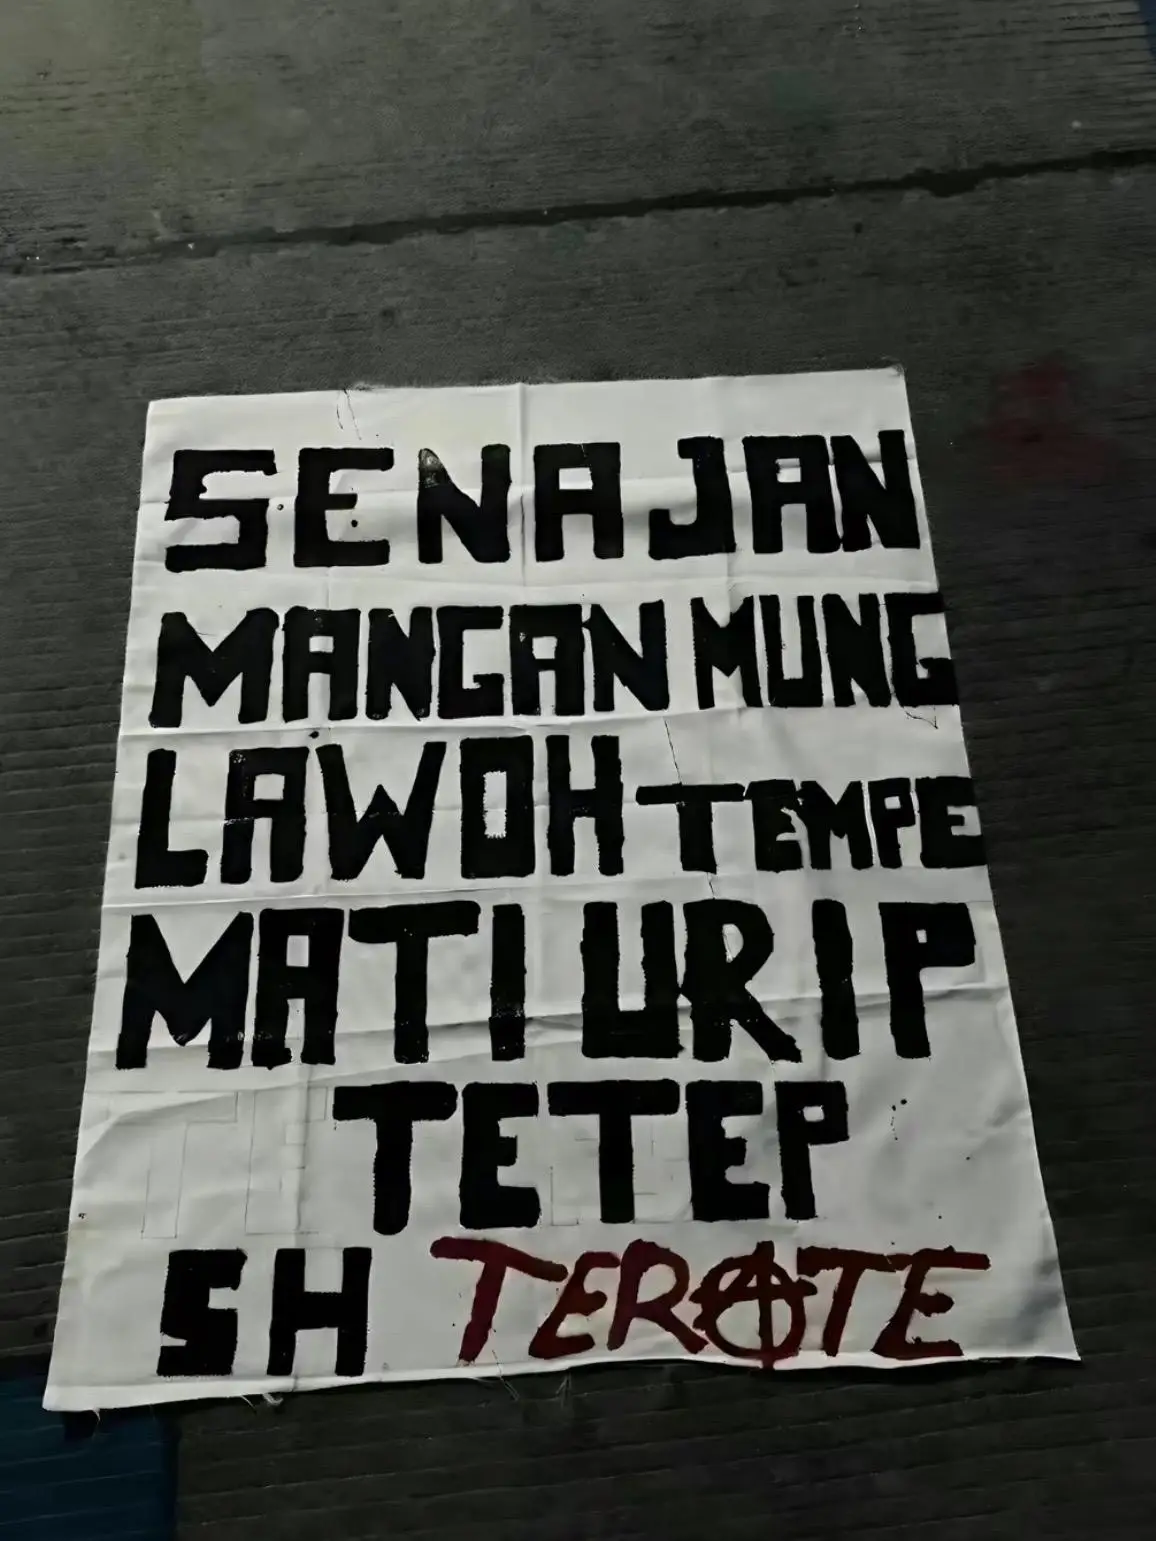 SENAJAN
MANGAN MUNG
LAWOH TEMPE
MATI URIP
TETEP
SH TERATE